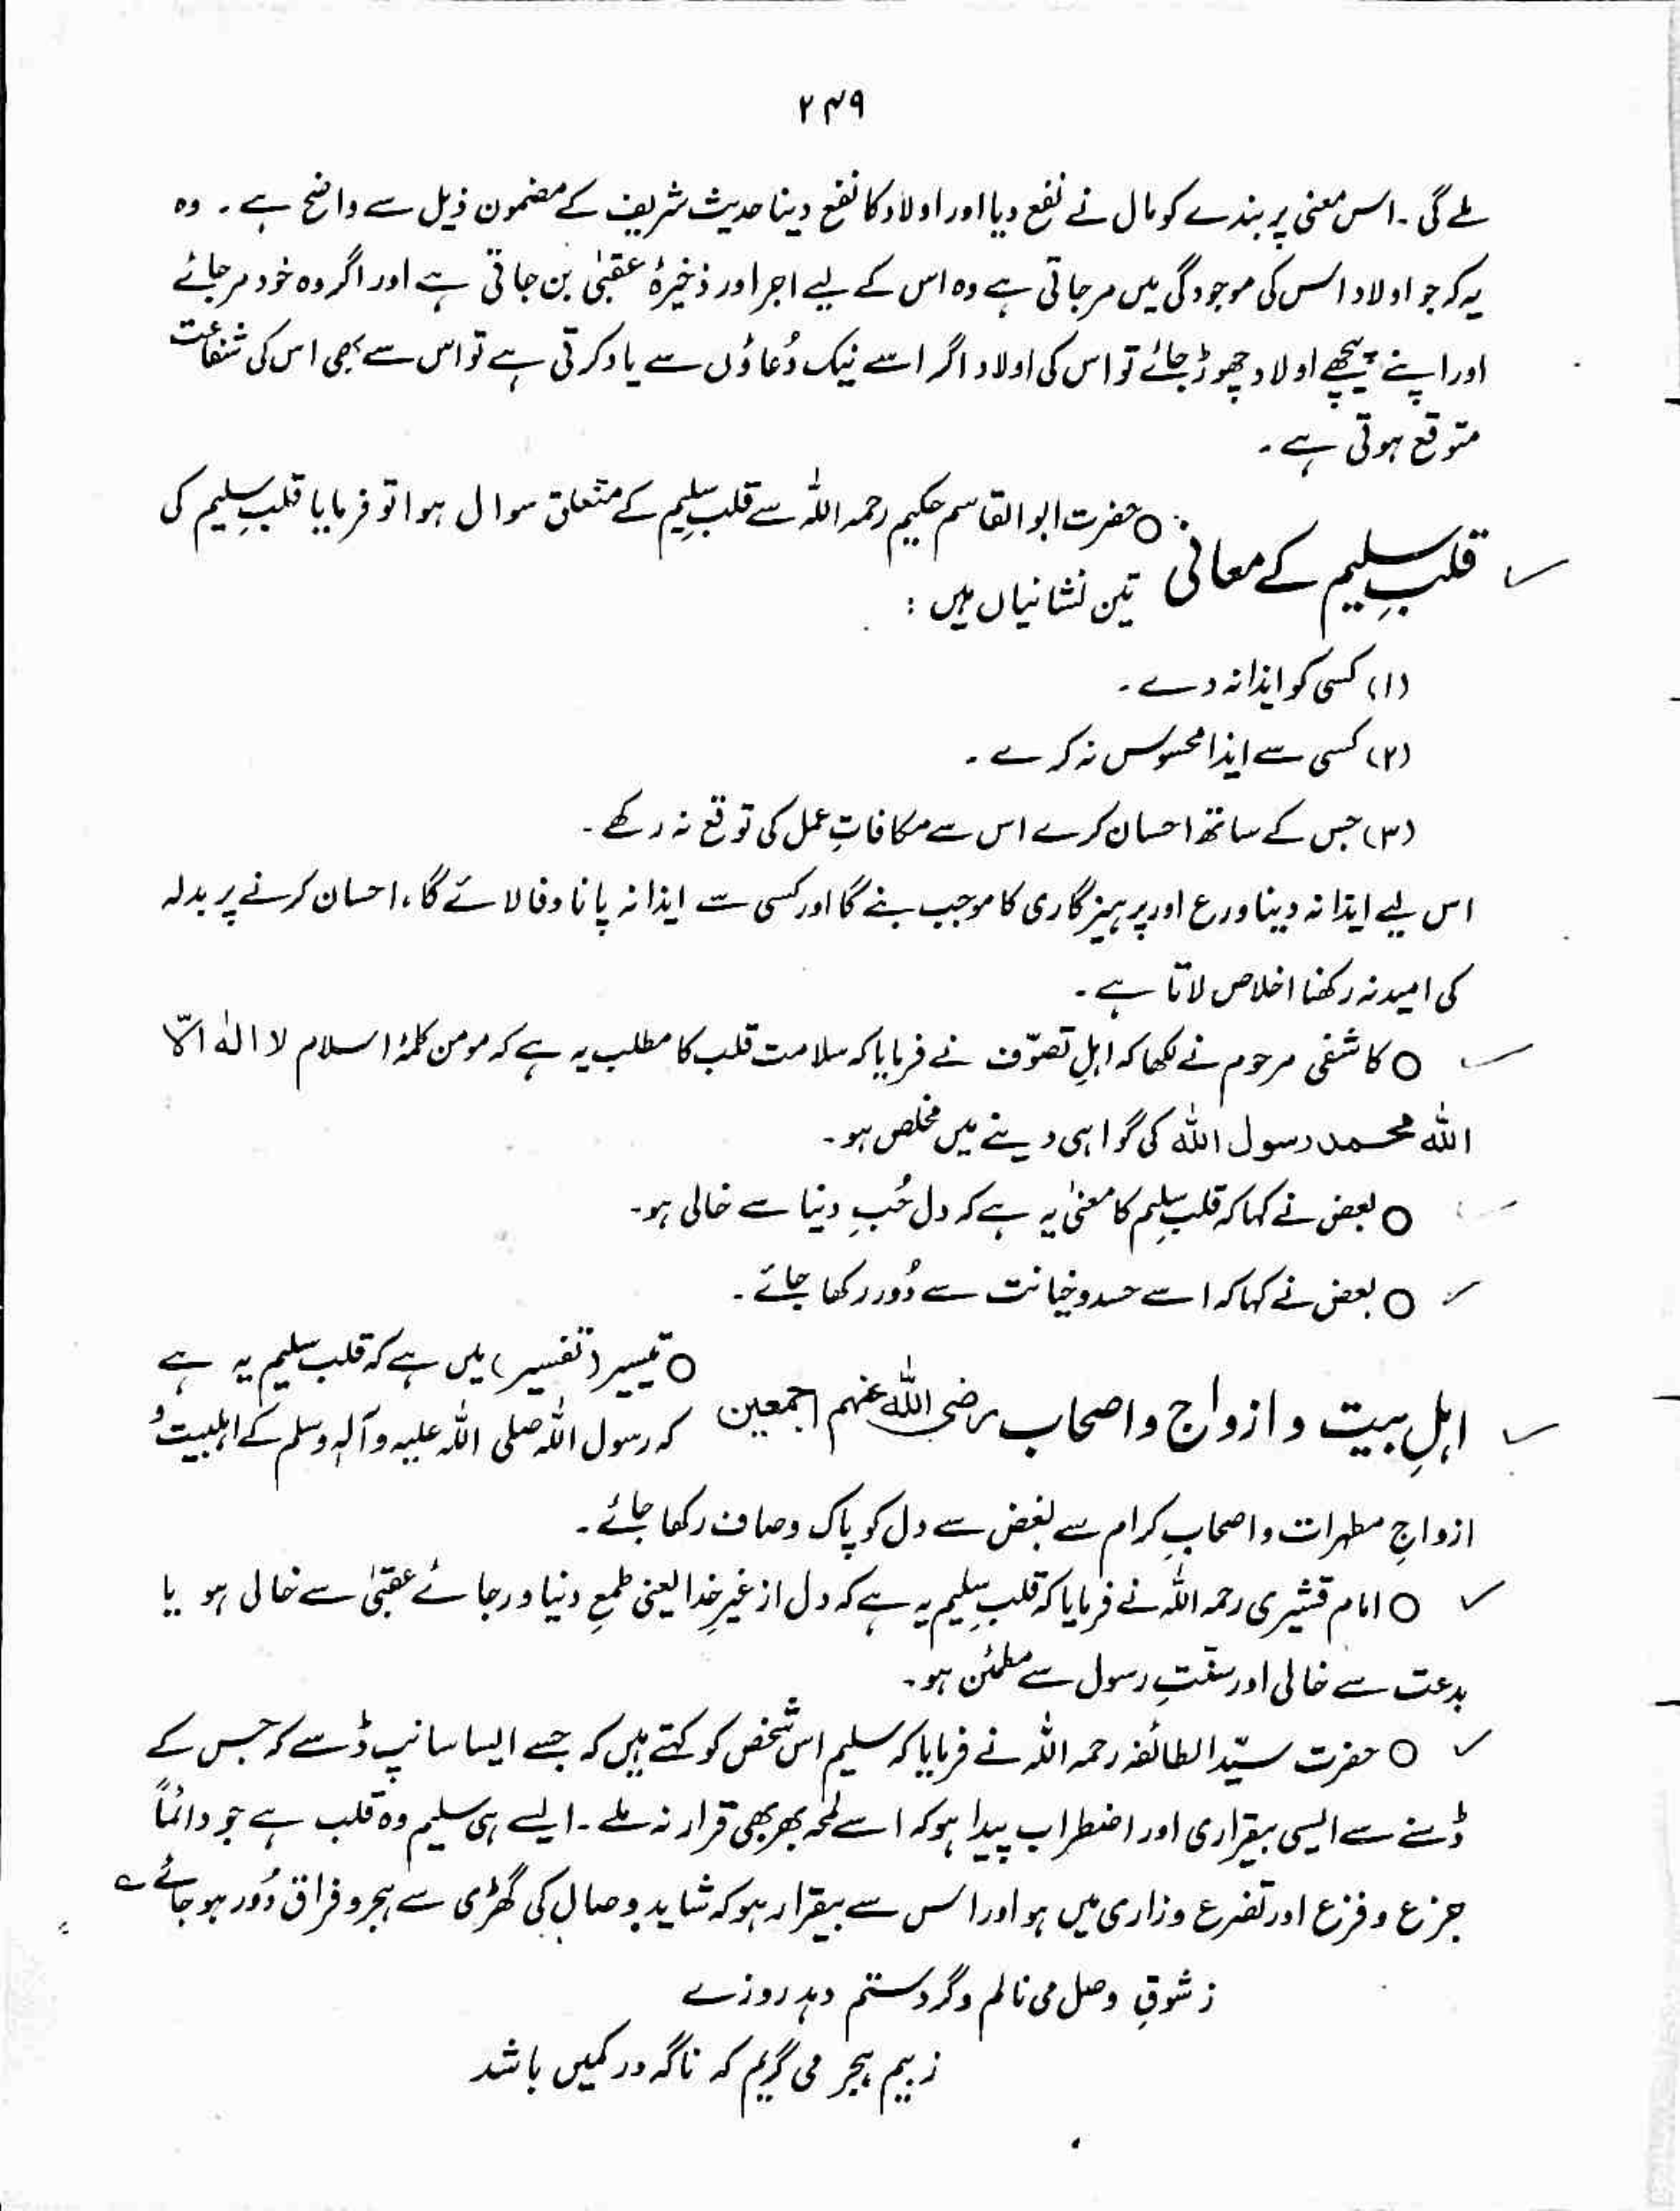 ۲۴۹
ملے گی۔ اس معنی پر بندے کو مال نے نفع دیا اور اولاد کا نفع دینا حدیث شریف کے مضمون ذیل سے واضح ہے۔ وہ
یہ کہ جو اولاد اس کی موجودگی میں مر جاتی ہے وہ اس کے لیے اجر اور ذخیرۂ عقبیٰ بن جاتی ہے اور اگر وہ خود مر جائے
اور اپنے پیچھے اولاد چھوڑ جائے تو اس کی اولاد اگر اسے نیک دُعاؤں سے یاد کرتی ہے تو اس سے بھی اس کی شفاعت
متوقع ہوتی ہے۔
قلبِ سلیم کے معانی
○ حضرت ابوالقاسم حکیم رحمہ اللہ سے قلبِ سلیم کے متعلق سوال ہوا تو فرمایا قلبِ سلیم کی
تین نشانیاں ہیں :
(۱) کسی کو ایذا نہ دے۔
(۲) کسی سے ایذا محسوس نہ کرے۔
(۳) جس کے ساتھ احسان کرے اس سے مکافاتِ عمل کی توقع نہ رکھے۔
اس لیے ایذا نہ دینا ورع اور پرہیزگاری کا موجب بنے گا اور کسی سے ایذا نہ پانا وفا لائے گا، احسان کرنے پر بدلہ
کی امید نہ رکھنا اخلاص لاتا ہے۔
○ کاشفی مرحوم نے لکھا کہ اہلِ تصوّف نے فرمایا کہ سلامت قلب کا مطلب یہ ہے کہ مومن کلمۂ اسلام لا الٰہ الّا
اللہ محمد رسول اللہ کی گواہی دینے میں مخلص ہو۔
○ بعض نے کہا کہ قلبِ سلیم کا معنیٰ یہ ہے کہ دل حُبِ دنیا سے خالی ہو۔
○ بعض نے کہا کہ اسے حسد و خیانت سے دُور رکھا جائے۔
اہلِ بیت و ازواج و اصحاب رضی اللہ عنہم اجمعین
○ تیسیر (تفسیر) میں ہے کہ قلب سلیم یہ ہے
کہ رسول اللہ صلی اللہ علیہ وآلہٖ وسلم کے اہلبیت و
ازواجِ مطہرات و اصحابِ کرام سے بغض سے دل کو پاک و صاف رکھا جائے۔
○ امام قشیری رحمہ اللہ نے فرمایا کہ قلبِ سلیم یہ ہے کہ دل از غیرِ خدا یعنی طمعِ دنیا و رجائے عقبیٰ سے خالی ہو یا
بدعت سے خالی اور سنّتِ رسول سے مطمئن ہو۔
○ حضرت سیّد الطائفہ رحمہ اللہ نے فرمایا کہ سلیم اس شخص کو کہتے ہیں کہ جسے ایسا سانپ ڈسے کہ جس کے
ڈسنے سے ایسی بیقراری اور اضطراب پیدا ہو کہ اسے لمحہ بھر بھی قرار نہ ملے۔ ایسے ہی سلیم وہ قلب ہے جو دائماً
جزع و فزع اور تضرع و زاری میں ہو اور اس سے بیقرار ہو کہ شاید وصال کی گھڑی سے ہجر و فراق دُور ہو جائے ے
ز شوقِ وصل می نالم وگر دستم دہد روزے
ز بیم ہجر می گریم کہ ناگہ در کمیں باشد